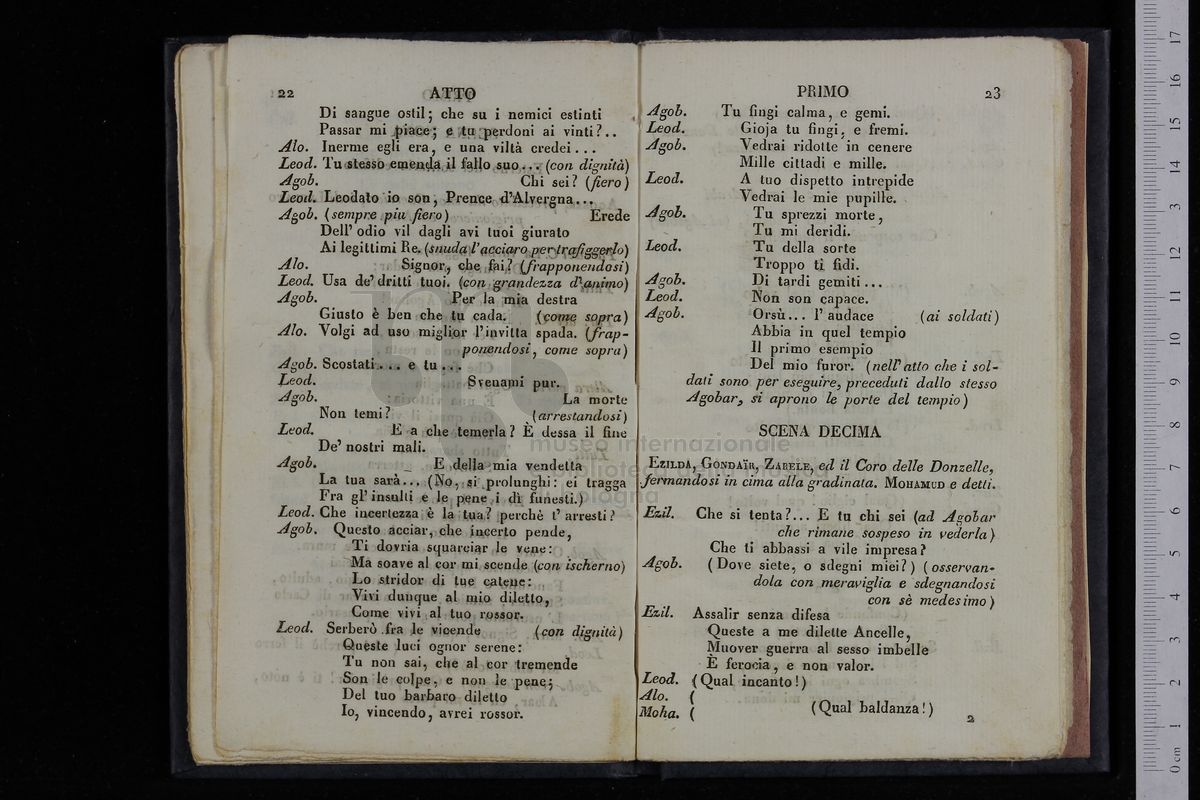 22 ATTO
Di sangue ostil; che su i nemici estinti
Passar mi piace; e tu perdoni ai vinti?..
Alo. Inerme egli era, e una viltà credei...
Leod. Tu stesso emenda il fallo suo... (con dignità)
Agob. Chi sei? (fiero)
Leod. Leodato io son, Prence d'Alvergna...
Agob. (sempre piu fiero) Erede
Dell' odio vil dagli avi tuoi giurato
Ai legittimi Re. (snuda l'acciaro per trafiggerlo)
Alo. Signor, che fai? (frapponendosi)
Leod. Usa de' dritti tuoi. (con grandezza d'animo)
Agob. Per la mia destra
Giusto è ben che tu cada. (come sopra)
Alo. Volgi ad uso miglior l'invitta spada. (frap-
ponendosi, come sopra)
Agob. Scostati... e tu...
Leod. Svenami pur.
Agob. La morte
Non temi? (arrestandosi)
Leod. E a che temerla? È dessa il fine
De' nostri mali.
Agob. E della mia vendetta
La tua sarà... (No, si prolunghi: ei tragga
Fra gl' insulti e le pene i dì funesti.)
Leod. Che incertezza è la tua? perchè t' arresti?
Agob. Questo acciar, che incerto pende,
Ti dovria squarciar le vene:
Ma soave al cor mi scende (con ischerno)
Lo stridor di tue catene:
Vivi dunque al mio diletto,
Come vivi al tuo rossor.
Leod. Serberò fra le vicende (con dignità)
Queste luci ognor serene:
Tu non sai, che al cor tremende
Son le colpe, e non le pene;
Del tuo barbaro diletto
Io, vincendo, avrei rossor.
PRIMO 23
Agob. Tu fingi calma, e gemi.
Leod. Gioja tu fingi, e fremi.
Agob. Vedrai ridotte in cenere
Mille cittadi e mille.
Leod. A tuo dispetto intrepide
Vedrai le mie pupille.
Agob. Tu sprezzi morte,
Tu mi deridi.
Leod. Tu della sorte
Troppo ti fidi.
Agob. Di tardi gemiti...
Leod. Non son capace.
Agob. Orsù... l' audace (ai soldati)
Abbia in quel tempio
Il primo esempio
Del mio furor. (nell' atto che i sol-
dati sono per eseguire, preceduti dallo stesso
Agobar, si aprono le porte del tempio)
SCENA DECIMA
EZILDA, GONDAÏR, ZARELE, ed il Coro delle Donzelle,
fermandosi in cima alla gradinata. MOHAMUD e detti.
Ezil. Che si tenta?... E tu chi sei (ad Agobar
che rimane sospeso in vederla)
Che ti abbassi a vile impresa?
Agob. (Dove siete, o sdegni miei?) (osservan-
dola con meraviglia e sdegnandosi
con sè medesimo)
Ezil. Assalir senza difesa
Queste a me dilette Ancelle,
Muover guerra al sesso imbelle
È ferocia, e non valor.
Leod. (Qual incanto!)
Alo. (
Moha. ( (Qual baldanza!)
2
museo internazionale
biblioteca della musica
bologna
0 cm 1 2 3 4 5 6 7 8 9 10 11 12 13 14 15 16 17